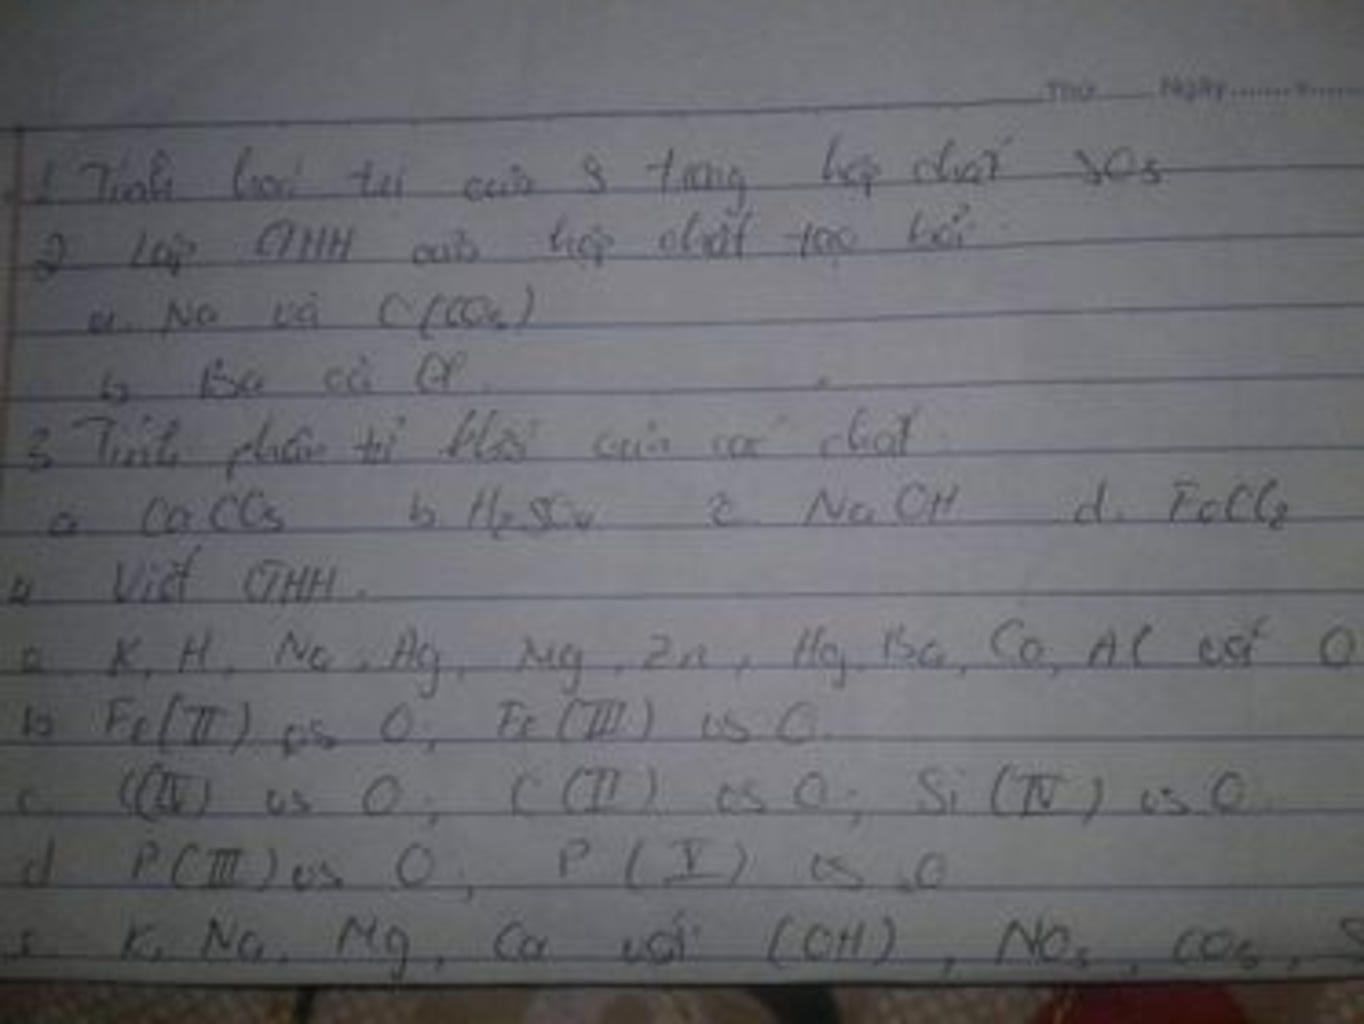 Thứ Ngày
1 Tính hoá trị của S trong hợp chất SO3
2 Lập CTHH của hợp chất tạo bởi
a. Na và C(CO3)
b Ba và Cl
3 Tính phân tử khối của các chất
a CaCO3 b H2SO4 c. NaOH d. FeCl2
4 Viết CTHH.
a K, H, Na, Ag, Mg, Zn, Hg, Ba, Ca, Al với O
b Fe(II) vs O, Fe(III) vs O.
c C(IV) vs O; C(II) vs O; Si(IV) vs O
d P(III) vs O, P(V) vs O
K, Na, Mg, Ca với (OH), NO3, CO3, S